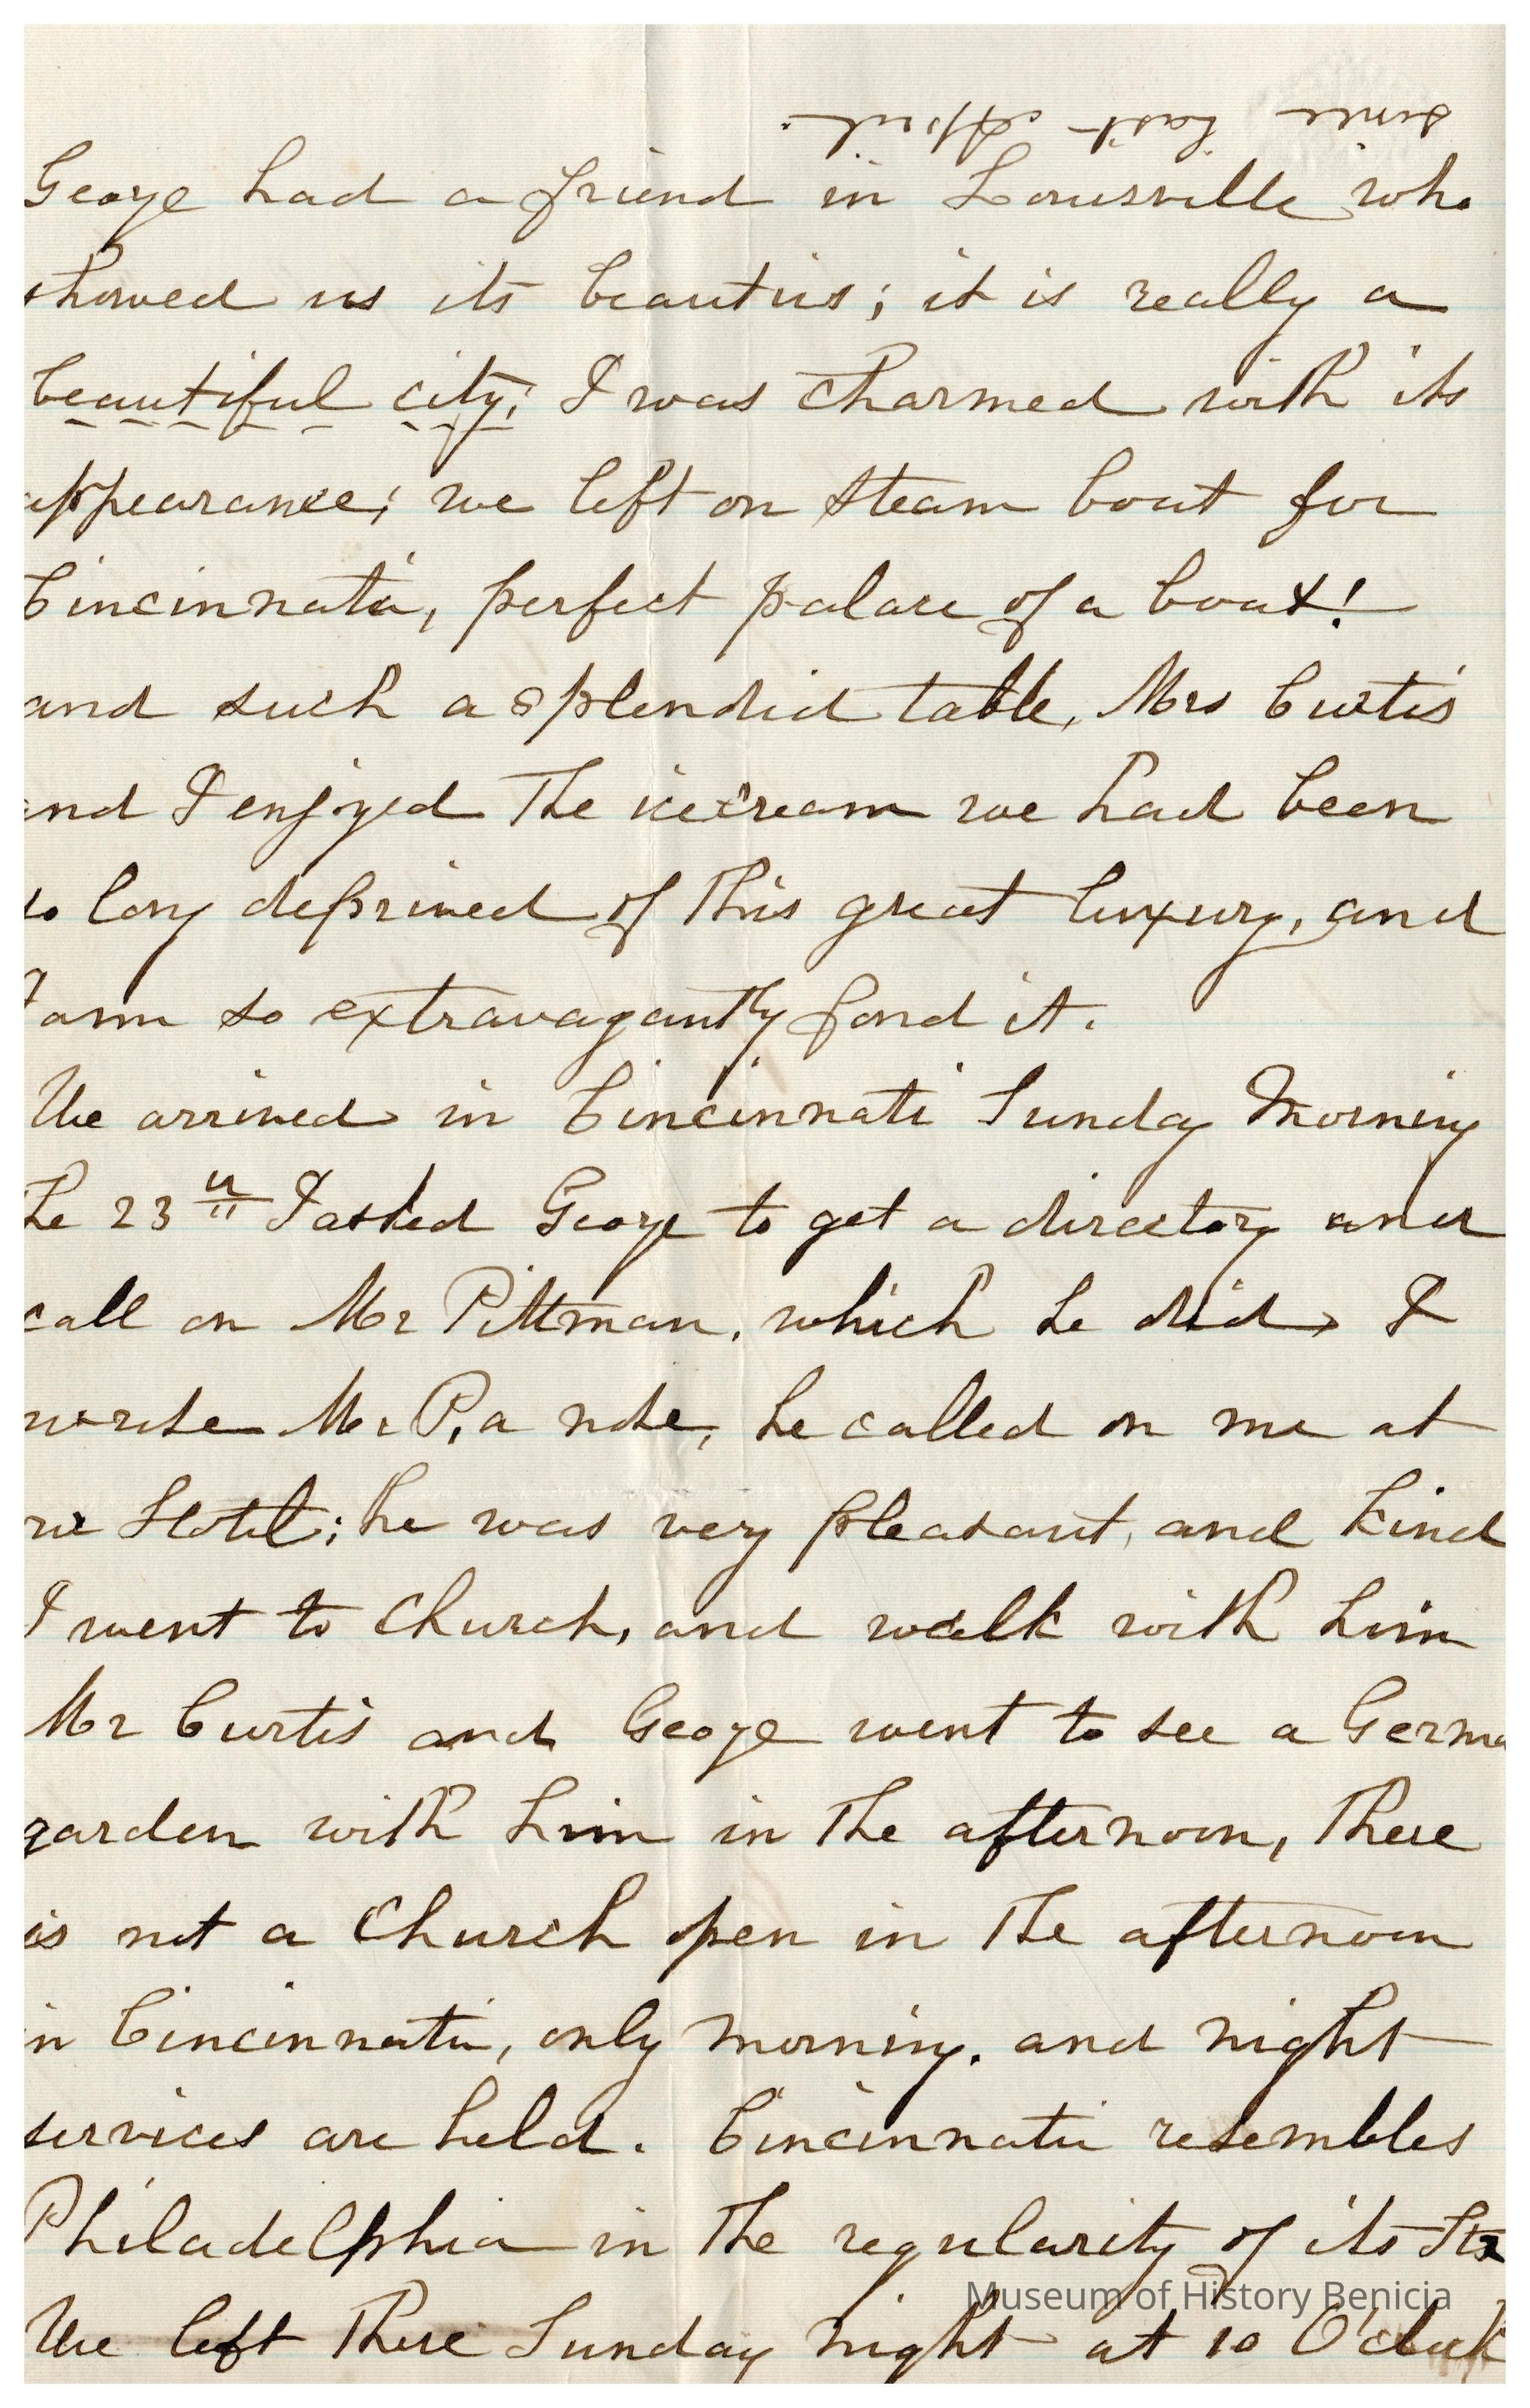 since last April.
George had a friend in Louisville who
showed us its beauties; it is really a
beautiful city; I was charmed with its
appearance; we left on steam boat for
Cincinnati, perfect palace of a boat!
and such a splendid table, Mrs Curtis
and I enjoyed the icecream we had been
so long deprived of this great luxury, and
I am so extravagantly fond it.
We arrived in Cincinnati Sunday Morning
the 23 I asked George to get a directory and
call on Mr Pittman, which he did, I
wrote Mr P, a note, he called on me at
Hotel; he was very pleasant, and kind
I went to Church, and walk with him
Mr Curtis and George went to see a Germa
garden with him in the afternoon, there
is not a Church open in the afternoon
in Cincinnati, only morning. and night
services are held. Cincinnati resembles
Philadelphia in the regularity of its Sts
We left there Sunday night at 10 O'clock
Museum of History Benicia